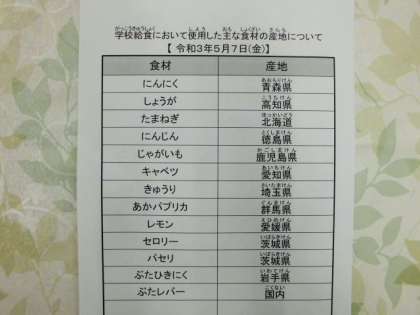 学校給食において使用した主な食材の産地について
【 令和3年5月7日(金)】
食材 産地
にんにく 青森県
しょうが 高知県
たまねぎ 北海道
にんじん 徳島県
じゃがいも 鹿児島県
キャベツ 愛知県
きゅうり 埼玉県
あかパプリカ 群馬県
レモン 愛媛県
セロリー 茨城県
パセリ 茨城県
ぶたひきにく 岩手県
ぶたレバー 国内